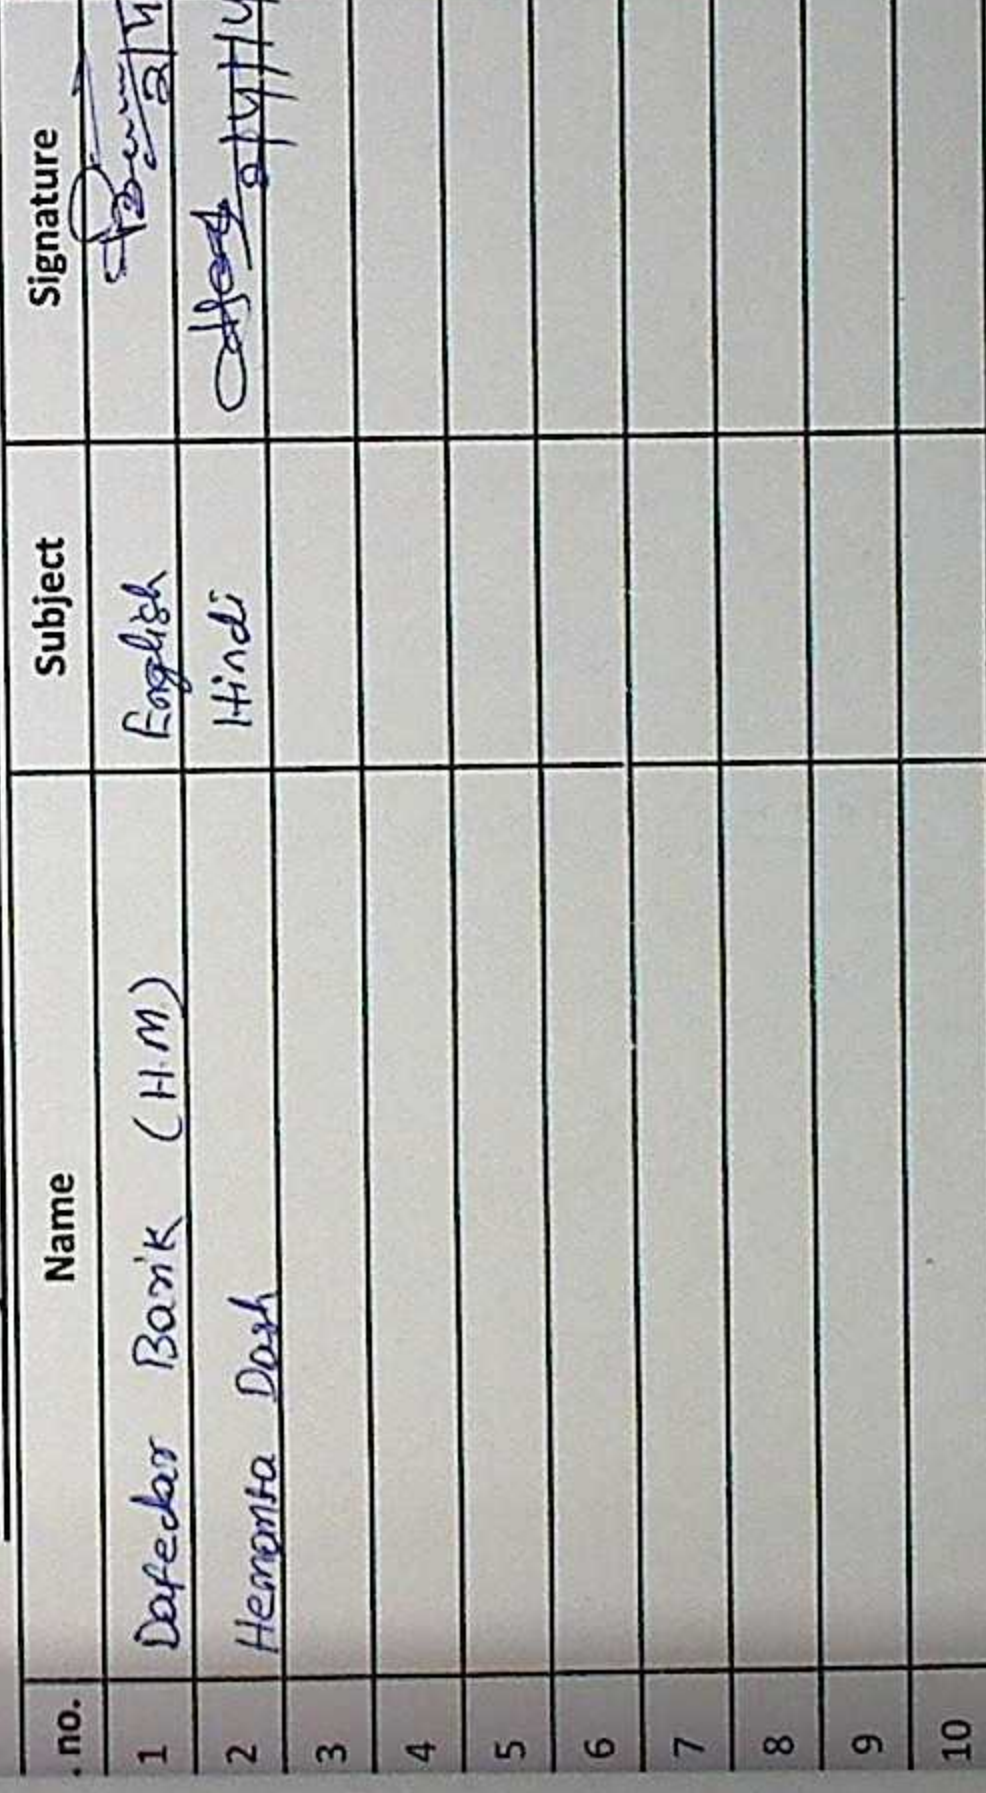 . no. Name Subject Signature
1 Dafedar Barik (H.M.) English
2 Hemanta Dash Hindi
3
4
5
6
7
8
9
10